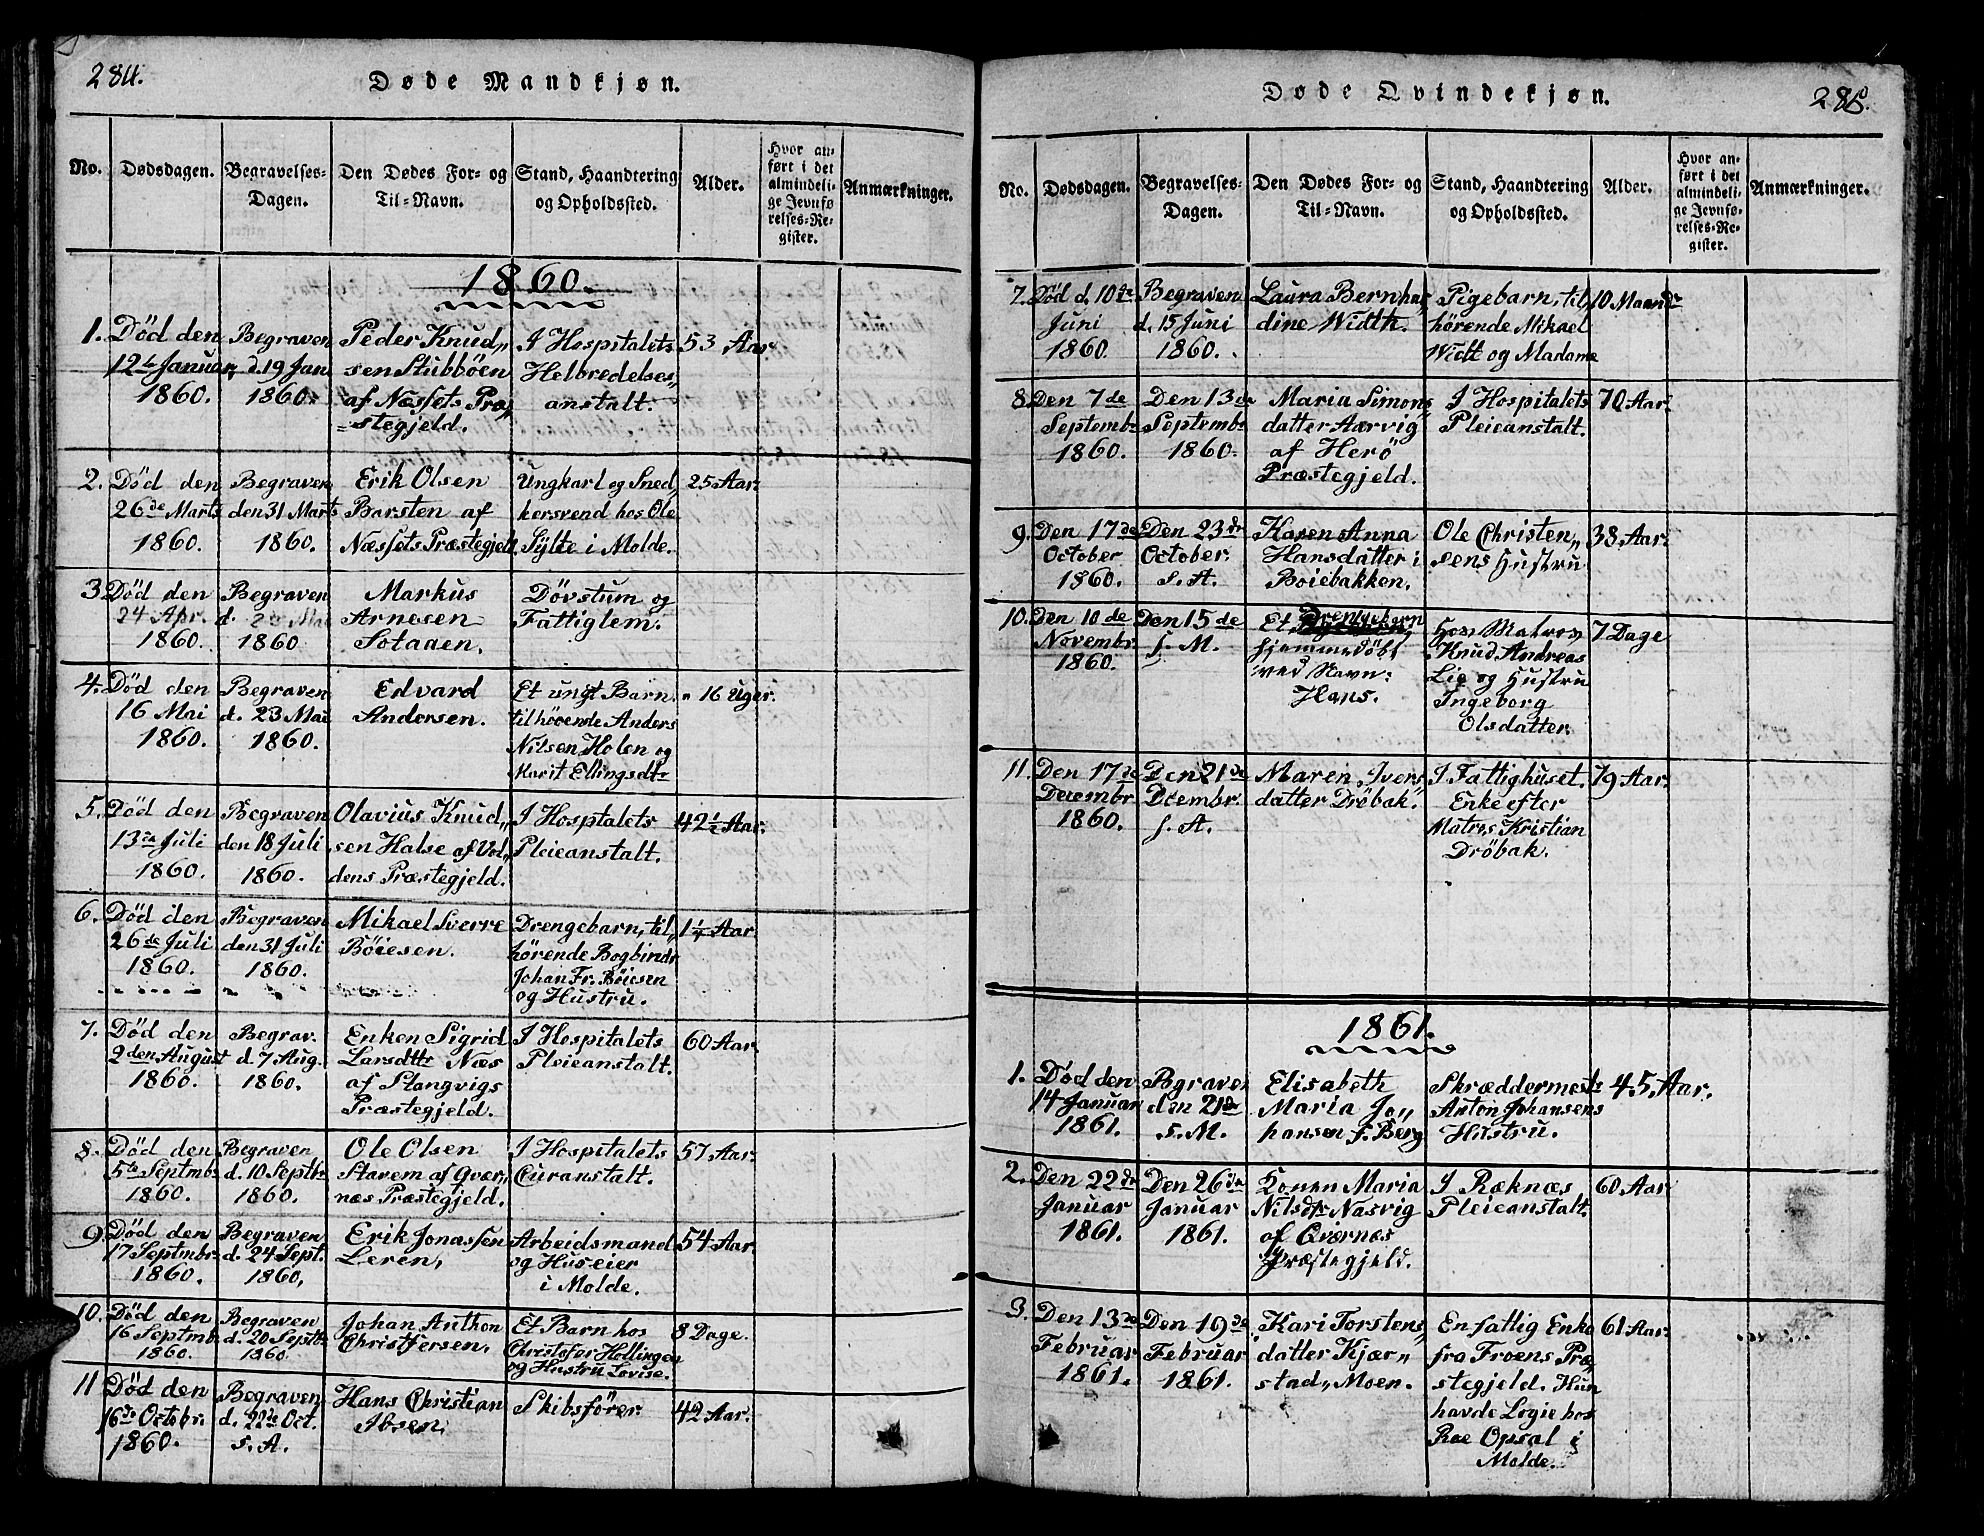 284.
Døde Mandkjøn.
No.
Dødsdagen.
Begravelses-
Dagen.
Den Dødes For- og
Til-Navn.
Stand, Haandtering
og Opholdssted.
Alder.
Hvor an-
ført i det
almindeli-
ge Jevnfø-
relses-Re-
gister.
Anmærkninger.
1860.
1.
Død den
12te Januar
1860.
Begraven
d. 19 Jan.
1860.
Peder Knud„
sen Stubböen
af Næssets Præ„
stegjeld.
I Hospitalets
Helbredelses„
anstalt.
53 Aar
2.
Død den
26de Marts
1860.
Begraven
den 31 Marts
1860.
Erik Olsen
Barsten af
Næssets Præstegjeld
Ungkarl og Sned„
kersvend hos Ole
Sylte i Molde.
25 Aar.
3.
Død den
24 Apr.
1860.
Begraven
d. 2de Mai
1860
Markus
Arnesen
Sotaaen
Dövstum og
Fattiglem.
4.
Død den
16 Mai
1860.
Begraven
d. 23 Mai
1860.
Edvard
Andersen.
Et ungt Barn,
tilhörende Anders
Nilsen Holen og
Marit Ellingsdtr
16 Uger.
5.
Død den
13de Juli
1860.
Begraven
den 18 Juli
1860.
Olavius Knud„
sen Halse af Vol„
dens Præstegjeld.
I Hosptalets
Pleieanstalt.
42½ Aar.
6.
Død den
26de Juli
1860.
Begraven
den 31 Juli
1860.
Mikael Sverre
Böiesen.
Drengebarn, til„
hörende Bogbindr
Johan Fr. Böiesen
og Hustru.
1¼ Aar
7.
Død den
2den August
1860.
Begrav.
d. 7 Aug.
1860.
Enken Sigrid
Larsdttr Næs
af Stangvigs
Præstegjeld.
I Hospitalets
Pleieanstalt.
60 Aar.
8.
Død den
5te Septmbr
1860.
Begraven
d. 10 Septbr
1860.
Ole Olsen
Stavem af Qvær„
næs Præstegjeld.
I Hospitalets
Curanstalt.
57 Aar.
9.
Død den
17 Septmbr.
1860.
Begraven
d. 24 Sept.
1860,
Erik Jonassen
Leren,
Arbeidsmand
og Huseier
i Molde.
54 Aar.
10.
Død den
16 Septmbr.
1860.
Begraven
d. 20 Septbr
1860.
Johan Anthon
Christfersen.
Et Barn hos
Christofer Hollingen
og Hustru Lovise.
8 Dage.
11
Død den
16de Octobr.
1860.
Begraven
d. 22de Oct.
s. A.
Hans Christian
Ibsen.
Skibsförer.
42 Aar.
Døde Qvindekjøn.
285.
No.
Dødsdagen.
Begravelses-
Dagen.
Den Dødes For- og
Til-Navn.
Stand, Haandtering
og Opholdssted.
Alder.
Hvor an-
ført i det
almindeli-
ge Jevnfø-
relses-Re-
gister.
Anmærkninger.
7.
Død d. 10de
Juni
1860.
Begraven
d. 15 Juni
1860.
Laura Bernhar„
dine Width.
Pigebarn, til„
hörende Mikael
Widt og Madame
10 Maandr
8.
Den 7de
Septembr
1860.
Den 13de
Septembr
1860.
Maria Simons„
datter Aarvig
af Herö
Præstegjeld.
I Hospitalets
Pleieanstalt.
70 Aar.
9.
Den 17de
October
1860.
Den 23de
October.
s. A.
Karen Anna
Hansdatter i
Böiebakken.
Ole Christen„
sens Hustru
38 Aar.
10.
Den 10de
Novembr.
1860.
Den 15de
s. M.
Et Drengebarn
hjemmedöbt
ved Navn:
Hans.
Hos Matros
Knud Andreas
Lie og Hustru
Ingeborg
Olsdatter.
7 Dage
11.
Den 17de
Decembr
1860.
Den 21de
Dcembr.
s. A.
Maren Ivers„
datter Dröbak.
I Fattighuset.
Enke efter
Matros Kristian
Dröbak.
79 Aar.
1861.
1.
Død den
14 Januar
1861.
Bgraven
den 21de
s. M.
Elisabeth
Maria Jo„
hansen f. Berg
Skræddermestr
Anton Johansens
Hustru.
45 Aar.
2.
Den 22de
Januar
1861.
Den 26de
Januar
1861.
Konen Maria
Nilsdtr Nasvig
af Qværnæs
Præstegjeld.
I Ræknæs
Pleieanstalt.
60 Aar
3.
Den 13de
Februar
1861.
Den 19de
Februar
1861.
Kari Torstens„
datter Kjær„
stad„ Moen.
En fattig Enke
fra Froens Præ„
stegjeld. Hun
havde Logie hos
Roe Opsal i
Molde.
61 Aar.